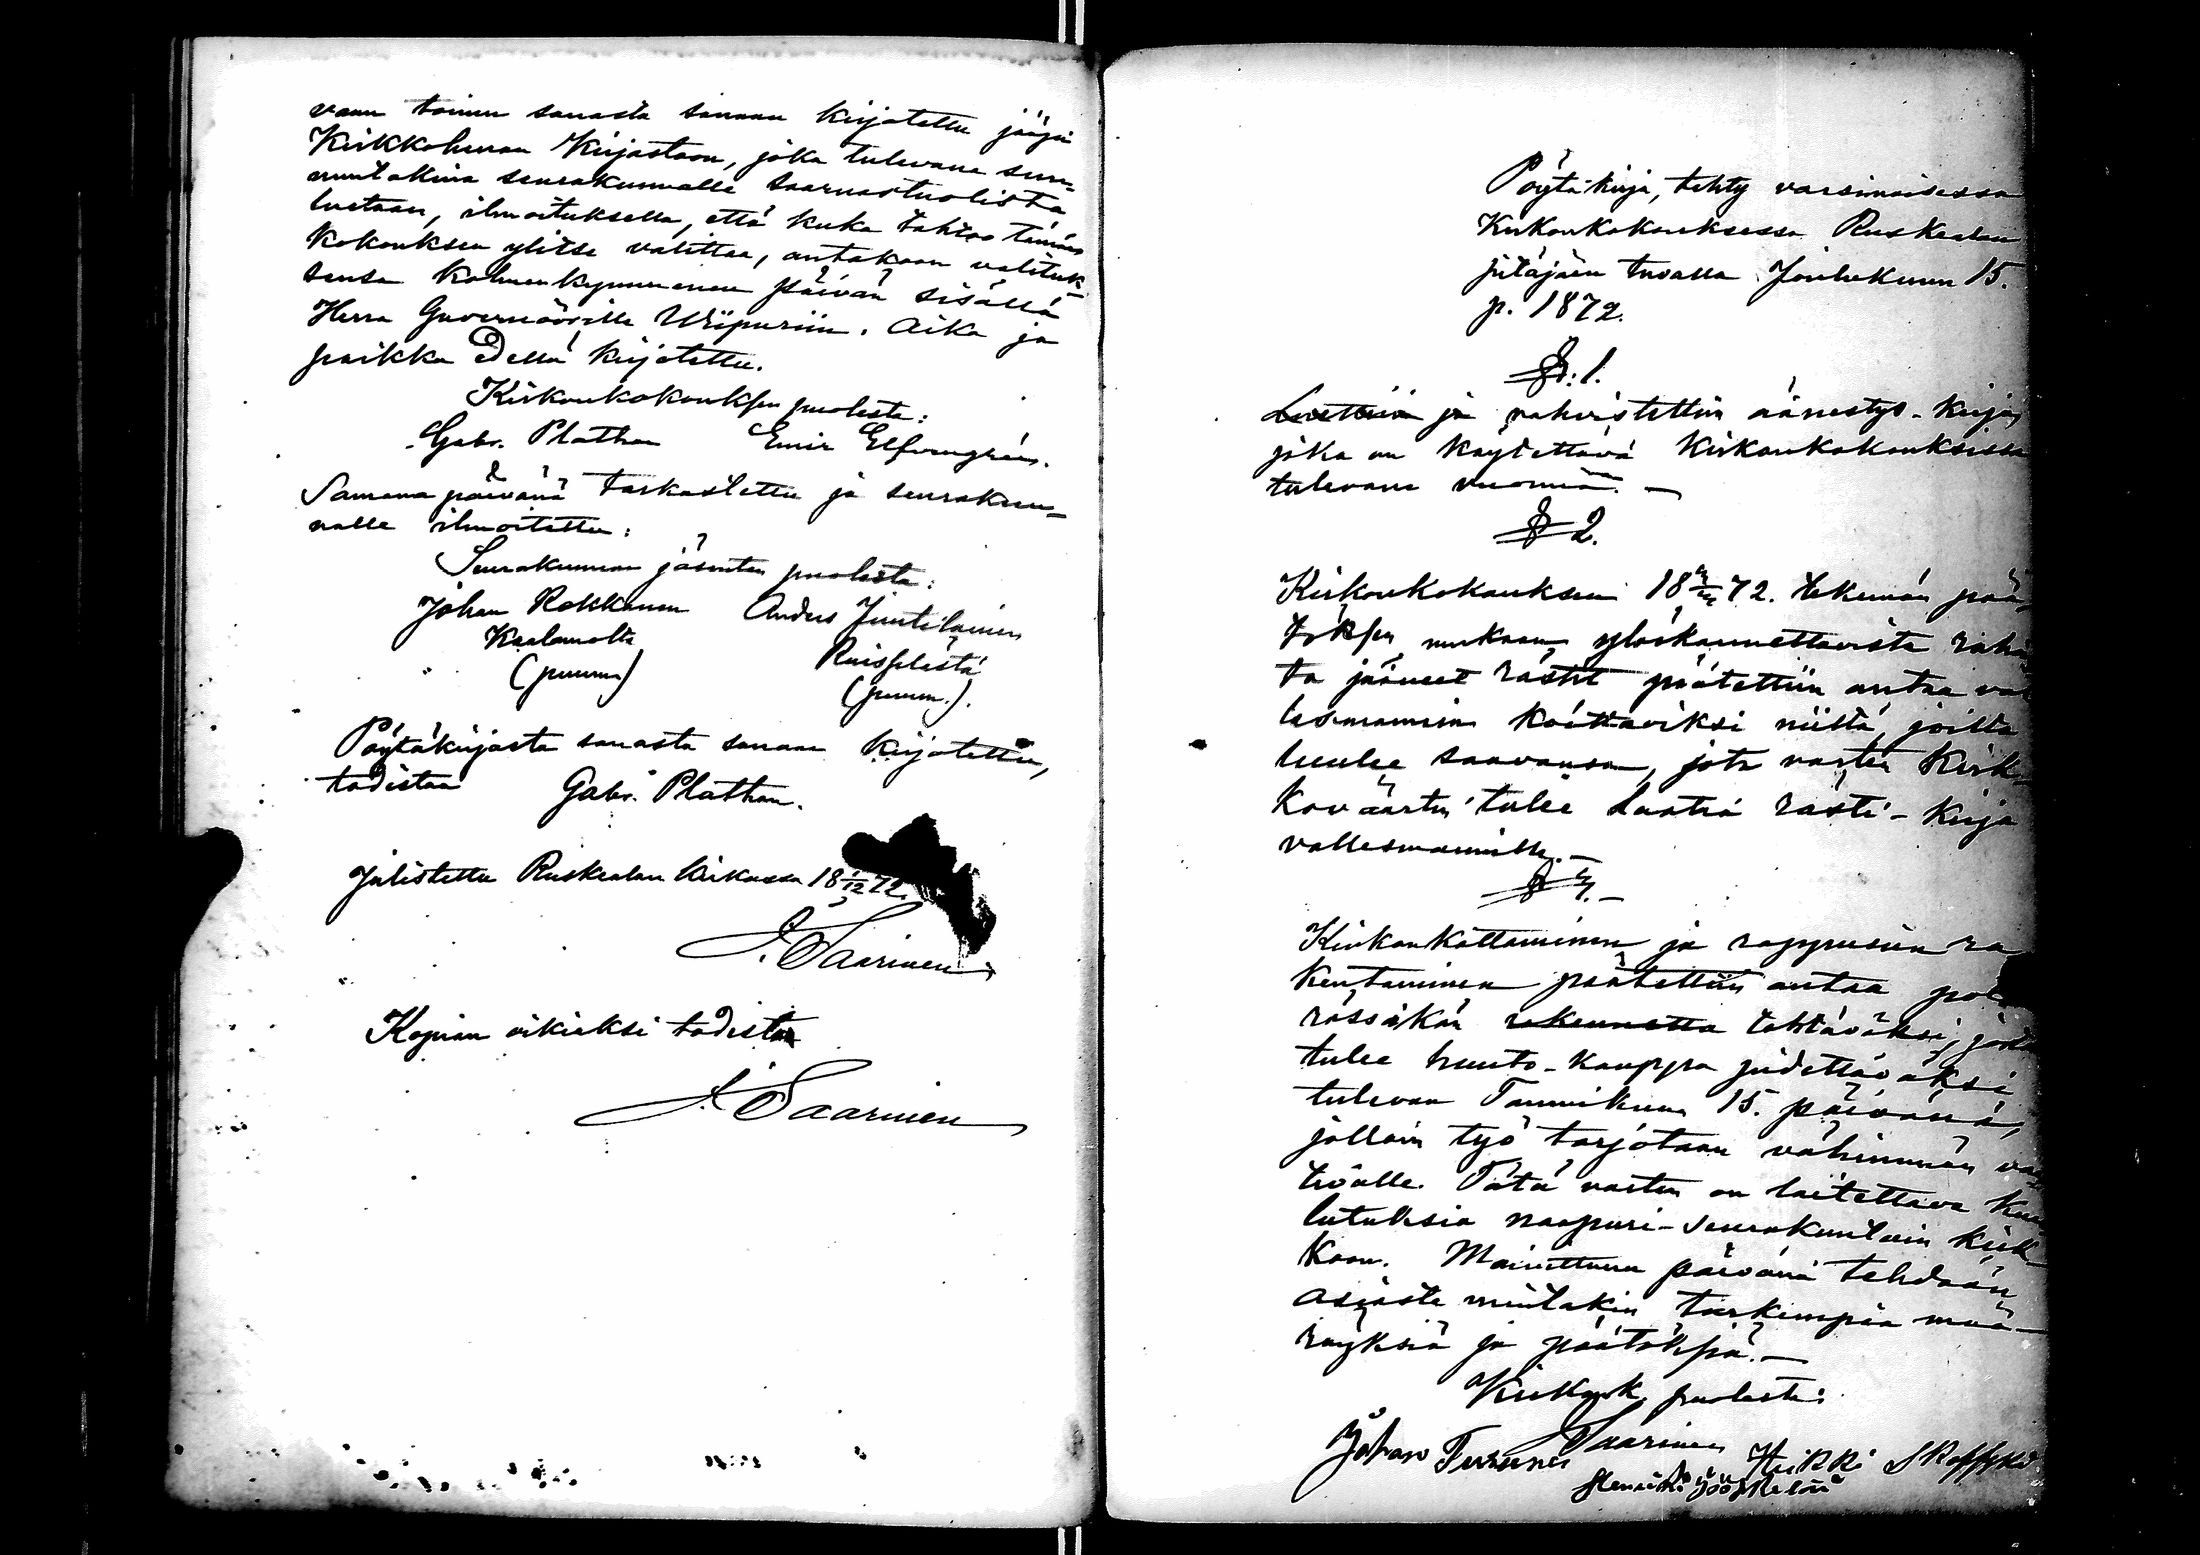 vaan toinen sanasta sanaan kirjotettu jääpi
Kirkkoherran Kirjastoon, joka tulevana sun-
nuntakina seurakunnalle saarnastuolista
luetaan, ilmoituksella, että kuka tahtoo tämän
Kokouksen ylitse valittaa, antakoon valituk-
sensa Kolmenkymmenen päivän sisällä
Herra Guvernöörille Wiipuriin. Aika ja
paikka Edellä kirjotettu.
Kirkonkokouksen puolesta:
Gabr. Plathan Emir Elfvengrén.
Samana päivänä tarkastettu ja seurakun-
nalle ilmoitettu:
Seurakunnan jäsenten puolesta:
Johan Rokkanen Anders Juntilainen
Kaalamolta Ruisselästä
(puum) (puum.).
Pöytäkirjasta sanasta sanaan kirjotettu,
todistaa Gabr. Plathan.
Julistettu Ruskealan kirkossa 18 1/12 72.
J. Saarinen
Kopian oikiaksi todistaa
J. Saarinen
Pöytäkirja, tehty varsinaisessa
Kirkonkokouksessa Ruskealan
pitäjään tuvalla Joulukuun 15.
p. 1872.
§: 1.
Luettiin ja vahvistettiin äänestys-kirja,
joka on käytettävä Kirkonkokouksissa
tulevana vuonna. —
§ 2.
Kirkonkokouksen 18 72. tekemän pää-
töksen mukaan, ylöskannettavista raha
ta jääneet rästit päätettiin antaa val
lesmannin koittaviksi niiltä, joilta
luulee saavansa, jota varten Kirk-
kovärtin tulee laatia rästi-kirja
vallesmannille. —
§ 3. —
Kirkonkattaminen ja rappusien ra
kentaminen päätettiin antaa
rässäkän rakennetta tehtäväksi, josta
tulee huuto-kauppa pidettäväksi
tulevan Tammikuun 15. päivänä,
jolloin työ tarjotaan vähimmän vaa
tivalle. Tätä varten on laitettava kuu
lutuksia naapuri-seurakuntain kirk
koon. Mainittuna päivänä tehdään
asiasta muutakin tarkempia mää-
räyksiä ja päätöksiä. —
Kirkonk. puolesta:
J. Saarinen
Johan Turunen Heikki